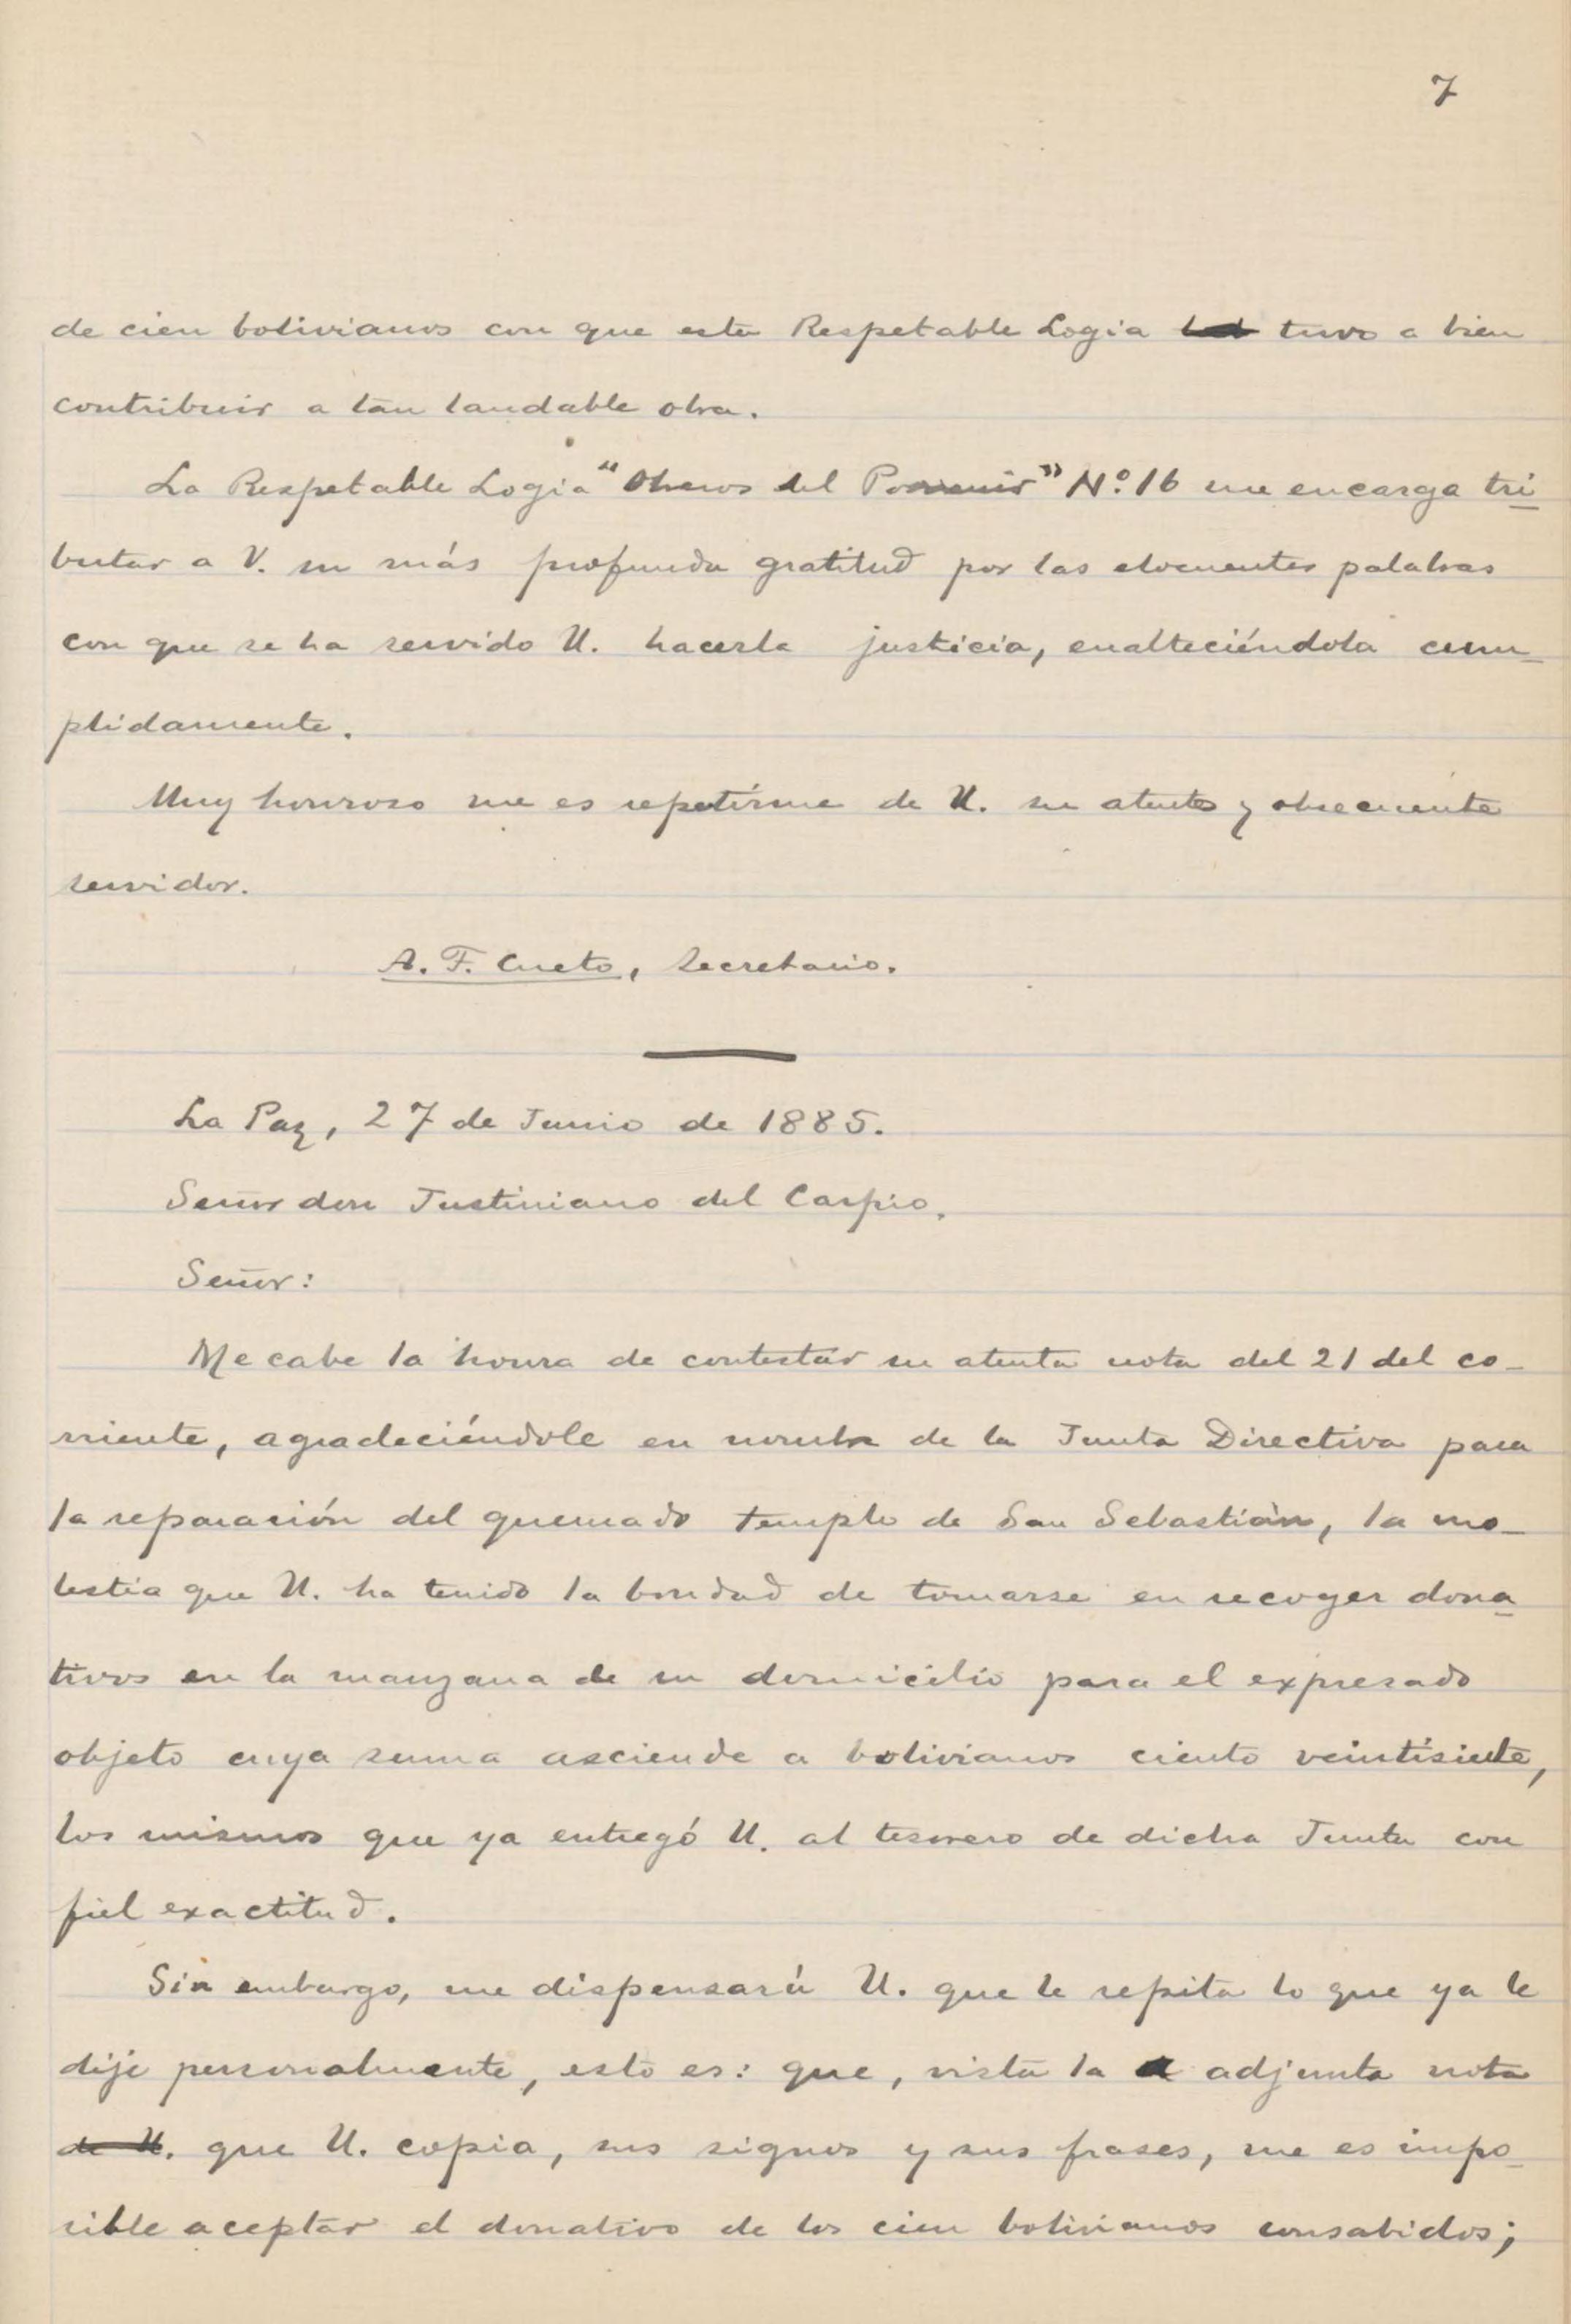 7
de cien bolivianos con que esta Respetable Logia tuvo a bien
contribuir a tan laudable obra.
La Respetable Logia "Obreros del Porvenir" Nº 16 me encarga tri-
butar a V. su más profunda gratitud por las elocuentes palabras
con que se ha servido U. hacerla justicia, enalteciéndola cum-
plidamente.
Muy honroso me es repetirme de U. su atento y obsecuente
servidor.
A. F. Cueto, Secretario.
La Paz, 27 de Junio de 1885.
Señor don Justiniano del Carpio.
Señor:
Me cabe la honra de contestar su atenta nota del 21 del co-
rriente, agradeciéndole en nombre de la Junta Directiva para
la reparación del quemado templo de San Sebastián, la mo-
lestia que U. ha tenido la bondad de tomarse en recoger dona-
tivos en la manzana de su domicilio para el expresado
objeto cuya suma asciende a bolivianos ciento veintisiete,
los mismos que ya entregó U. al tesorero de dicha Junta con
fiel exactitud.
Sin embargo, me dispensará U. que le repita lo que ya le
dije personalmente, esto es: que, vista la adjunta nota
de U. que U. copia, sus signos y sus frases, me es impo-
sible aceptar el donativo de los cien bolivianos consabidos;